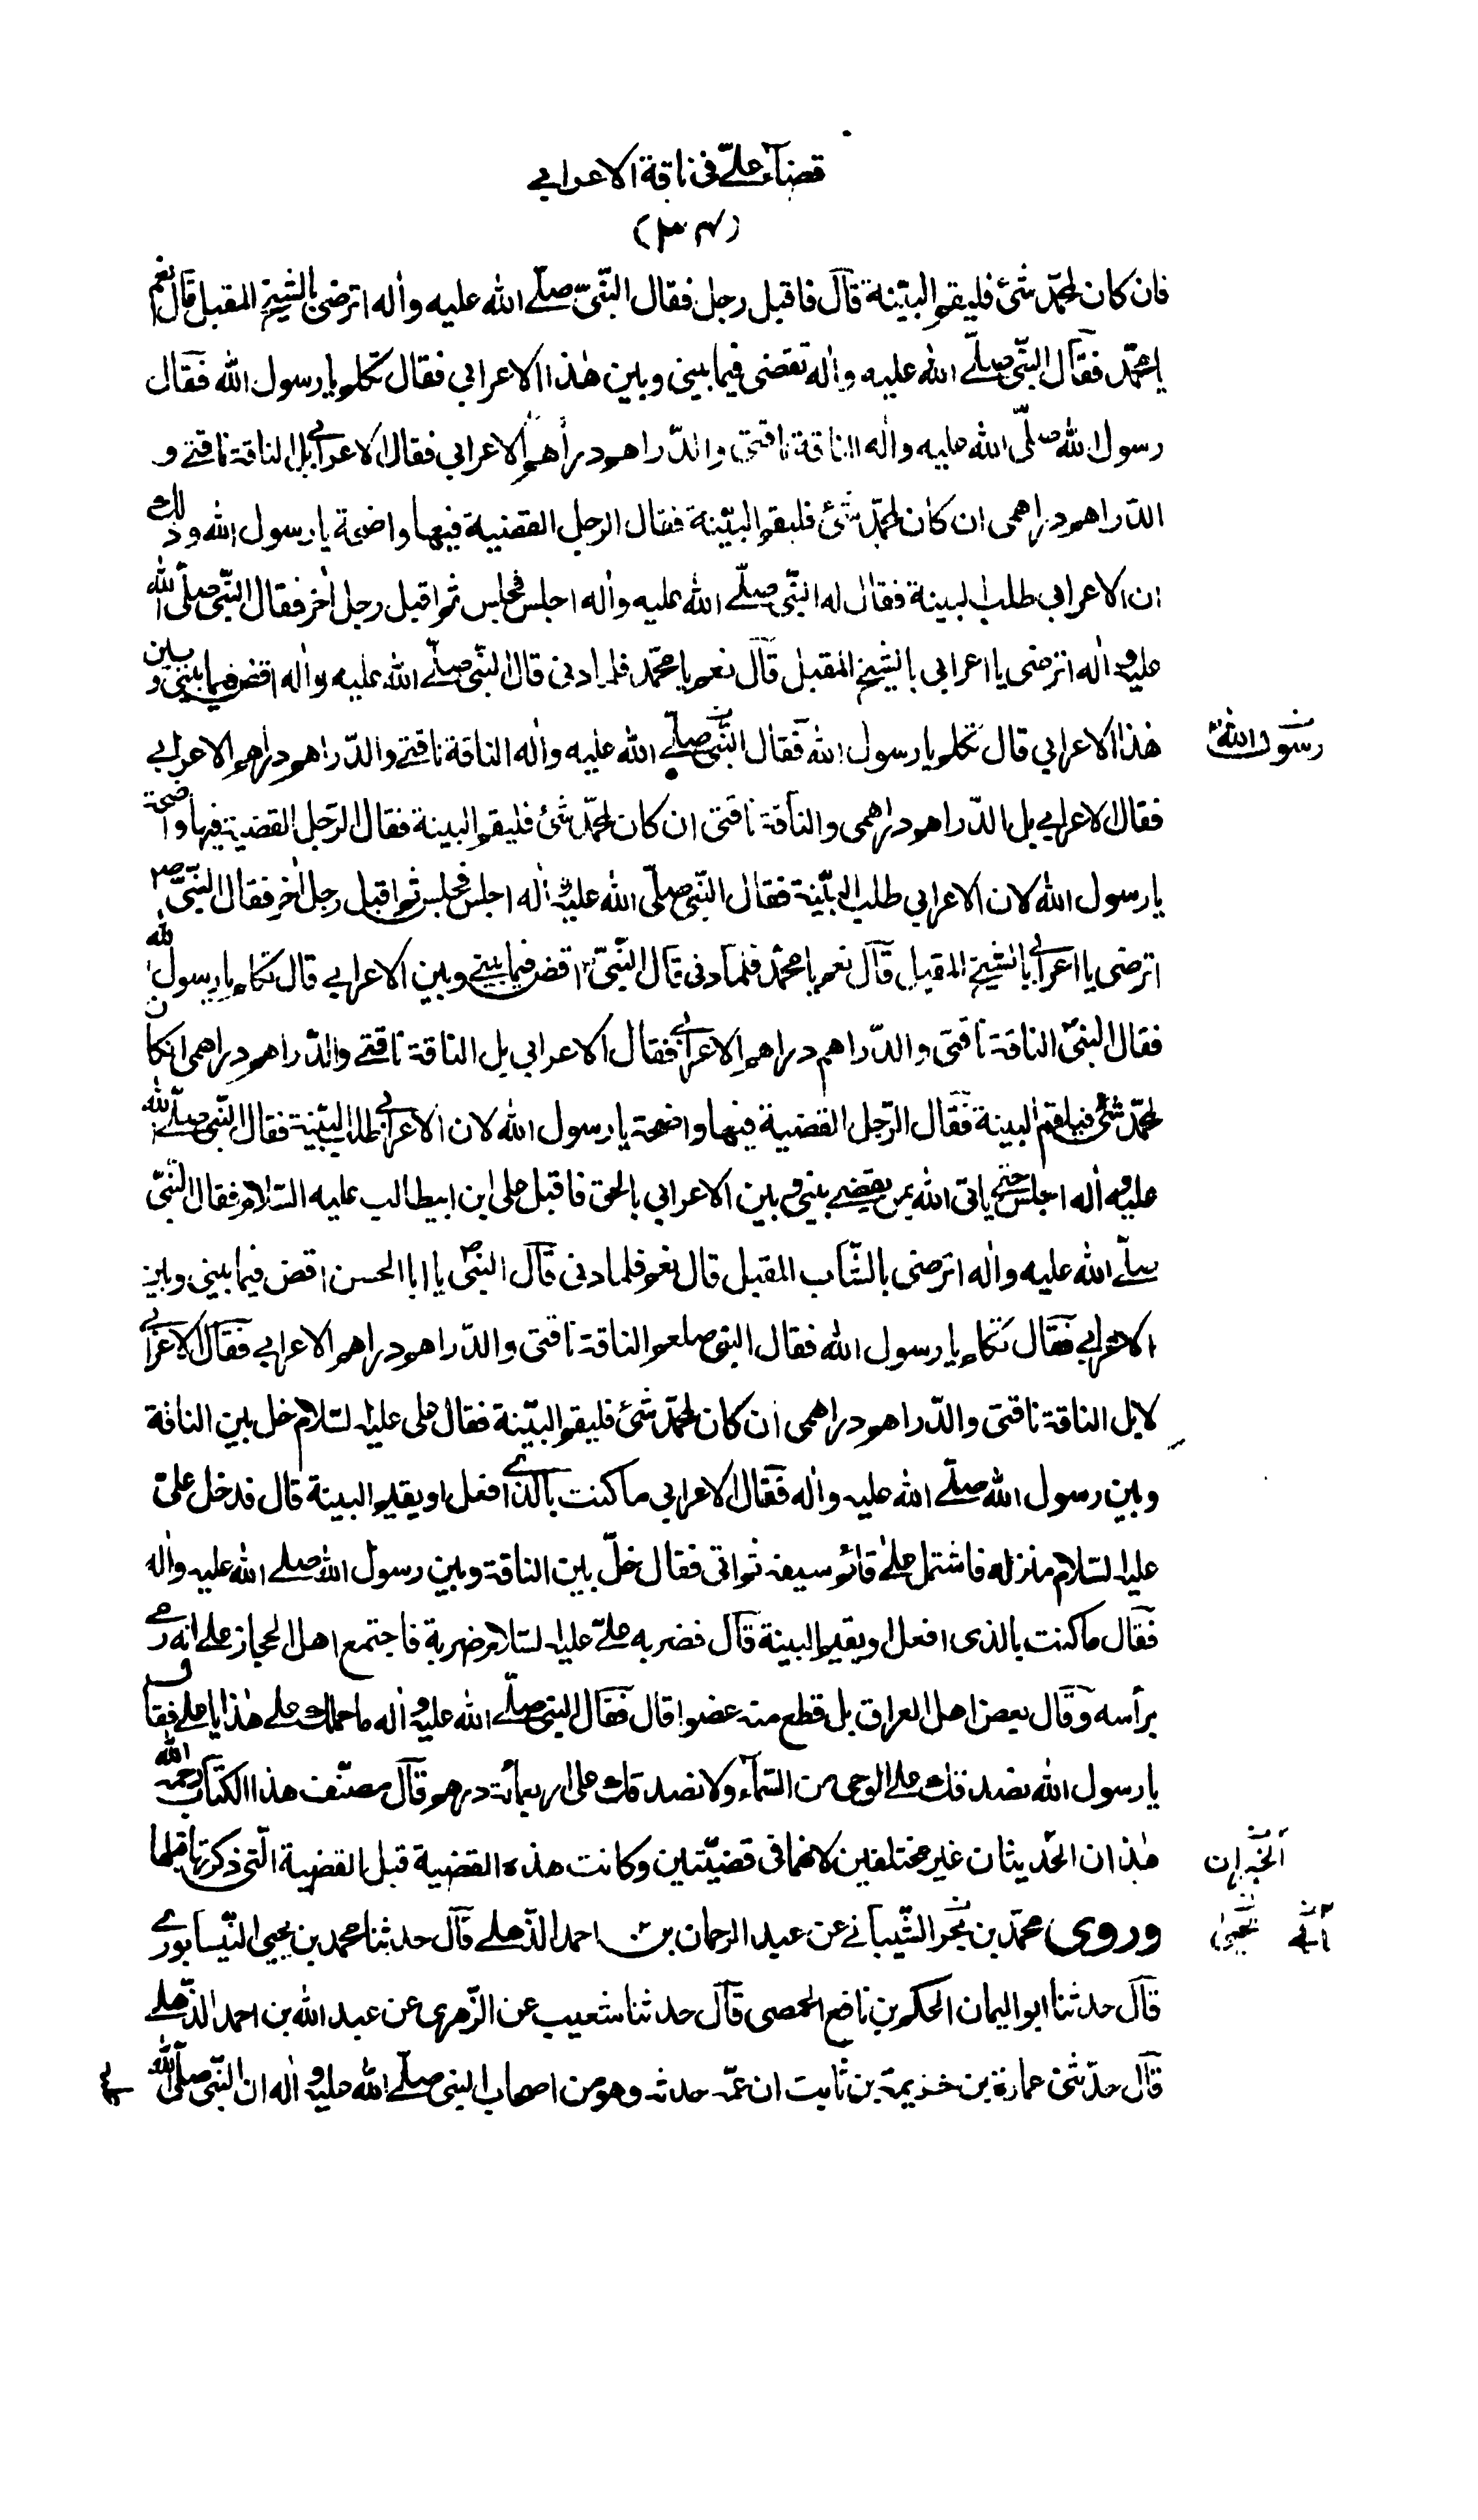 قضاء علیّ فی ناقة الاعرابی
فان کان لمحمّد شئ فلیقم البیّنة قال فاقبل رجل فقال النّبیّ صلّی الله علیه واٰله اترضی بالشیخ المقبل قال نعم
یا محمّد فقال النّبی صلّی الله علیه واٰله تقضی فیما بینی وبین هٰذا الاعرابی فقال تکلم یا رسول الله فقال
رسول الله صلّی الله علیه واٰله الناقة ناقتی والدّراهم دراهم الاعرابی فقال الاعرابی بل الناقة ناقتی و
الدّراهم دراهمی ان کان لمحمّد شئ فلیقم البیّنة فقال الرجل القضیة فیها واضحة یا رسول الله وذلك
ان الاعرابی طلب البینة فقال له النّبی صلّی الله علیه واٰله اجلس فجلس ثم اقبل رجل اٰخر فقال النّبی صلّی الله
علیه واٰله اترضی یا اعرابی بالشیخ المقبل قال نعم یا محمّد فلما دنی قال النّبی صلّی الله علیه واٰله اقض فیما بینی وبین
هٰذا الاعرابی قال تکلم یا رسول الله فقال النّبی صلّی الله علیه واٰله الناقة ناقتی والدّراهم دراهم الاعرابی
رسول الله
فقال الاعرابی بل الدّراهم دراهمی والناقة ناقتی ان کان لمحمّد شئ فلیقم البینة فقال الرّجل القضیة فیها واضحة
یا رسول الله لان الاعرابی طلب البیّنة فقال النّبی صلّی الله علیه واٰله اجلس فجلس ثم اقبل رجل اٰخر فقال النّبیّ ص
اترضی یا اعرابی بالشیخ المقبل قال نعم یا محمّد فلما دنی قال النّبیّ اقض فیما بینی وبین الاعرابی قال تکلم یا رسول الله
فقال النبیّ الناقة ناقتی والدّراهم دراهم الاعرابی فقال الاعرابی بل الناقة ناقتی والدّراهم دراهمی ان کان
لمحمّد شئ فلیقم البینة فقال الرّجل القضیة فیها واضحة یا رسول الله لان الاعرابی طلب البیّنة فقال النّبی صلّی الله
علیه واٰله اجلس حتی یاتی الله بمن یقضی بینی وبین الاعرابی بالحق فاقبل علی ابن ابیطالب علیه السّلام فقال النّبیّ
صلّی الله علیه واٰله اترضی بالشّاب المقبل قال نعم فلما دنی قال النبیّ یا ابا الحسن اقض فیما بینی وبین
الاعرابی فقال تکلم یا رسول الله فقال النبی صلعم الناقة ناقتی والدّراهم دراهم الاعرابی فقال الاعرابی
لا بل الناقة ناقتی والدّراهم دراهمی ان کان لمحمّد شئ فلیقم البیّنة فقال علی علیه السّلام خل بین الناقة
وبین رسول الله صلّی الله علیه واٰله فقال الاعرابی ما کنت بالّذی افعل او یقیم البینة قال فدخل علیّ
علیه السّلام منزله فاشتمل علی قائم سیفه ثم اتی فقال خلّ بین الناقة وبین رسول الله صلی الله علیه واٰله
فقال ما کنت بالذی افعل او یقیم البینة قال فضربه علیّ علیه السّلام ضربة فاجتمع اهل الحجاز علی انه رمی
برأسه وقال بعض اهل العراق بل قطع منه عضوا قال فقال النبی صلّی الله علیه واٰله ما حملك علی هٰذا یا علی فقال
یا رسول الله نصدقك علی الوحی من السّماء ولا نصدقك علی اربعمائة درهم قال مصنّف هذا الکتاب رحمه الله
هٰذان الحدیثان غیر مختلفین لانهما فی قضیّتین وکانت هذه القضیة قبل القضیة الّتی ذکرتها قبلها
الخبران
وروی محمّد بن بحر الشّیبانی عن عبد الرحمان بن احمد الذّهلی قال حدثنا محمد بن یحیی النّیسابوری
قال حدثنا ابو الیمان الحکم بن نافع الحمصی قال حدثنا شعیب عن الزّهری عن عبد الله بن احمد الذّهلی
قال حدّثنی عمارة بن خزیمة بن ثابت ان عمّه حدثه وهو من اصحاب النبی صلّی الله علیه واٰله ان النّبی صلّی الله